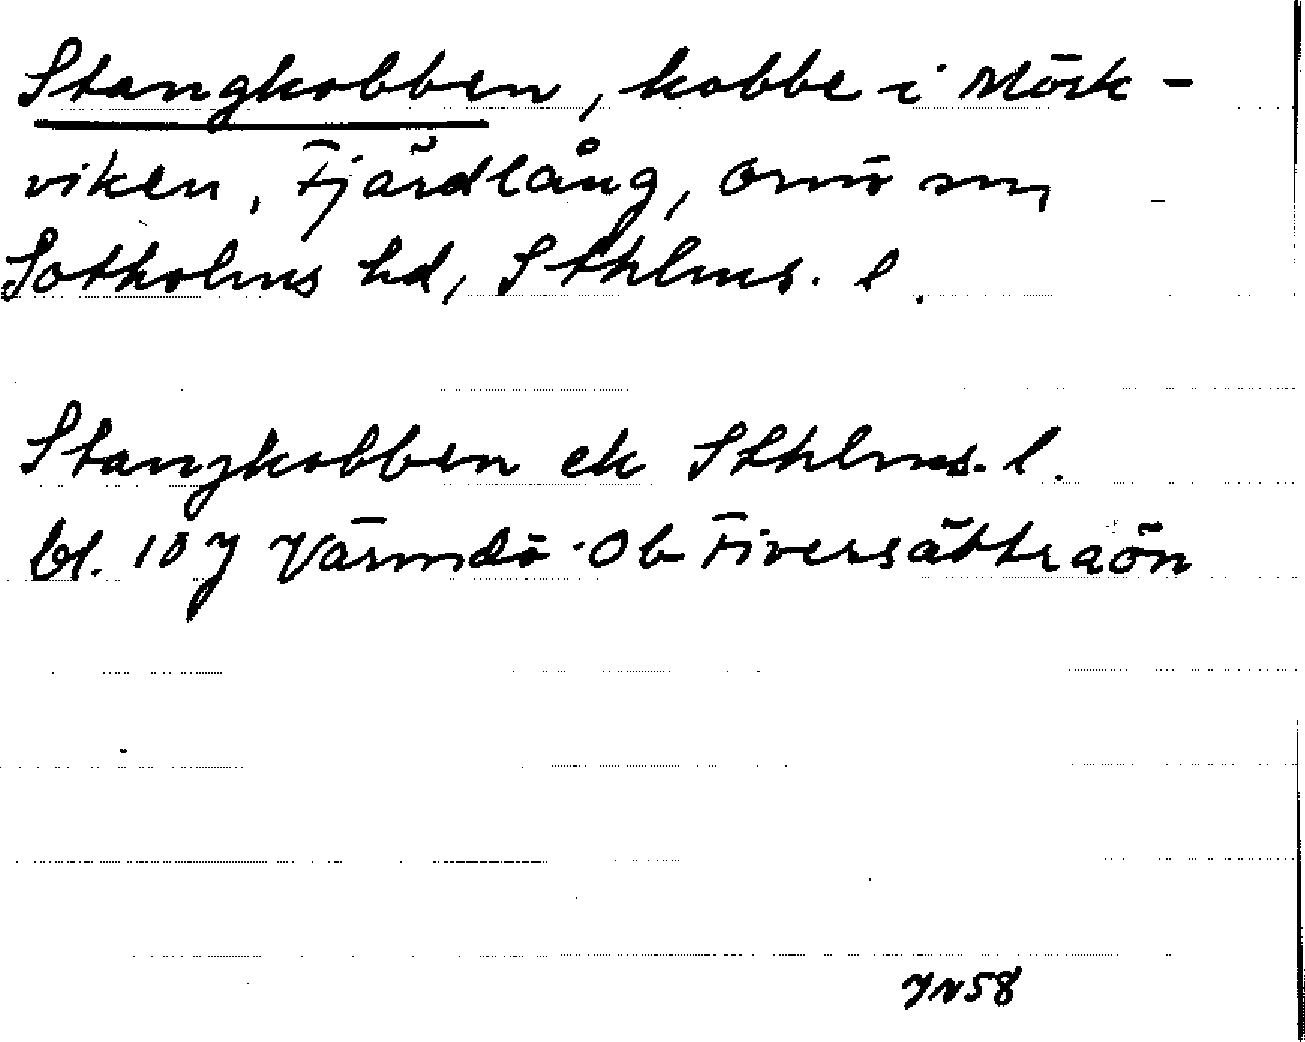 Stangkobben, kobbe i Mörk-
viken, Fjärdlång, Ornö sn,
Sotholms hd, Sthlms. l.
Stangkobben ek Sthlms. l.
bl. 10 J Värmdö Ob Fiversättraön
JN58